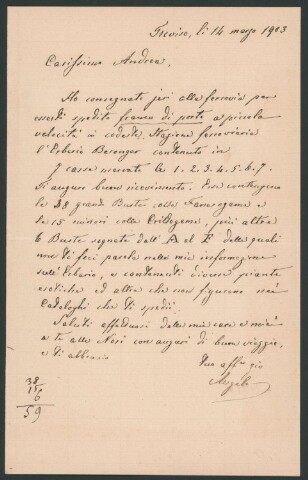 Treviso, li 14 marzo 1903
Carissimo Andrea,
Ho consegnato jeri alla ferrovia per
esserti spedito franco di porto a piccola
velocità in codesta Stazione ferroviaria
l'Erbario Berenger contenuto in
7 casse numerate 1. 2. 3. 4. 5. 6. 7.
Ti auguro buon ricevimento. Esse contengono
le 38 grandi Buste colle Fanerogame e
le 15 minori colle Crittogame, più altre
6 Buste segnate dall'A al F delle quali
non ti feci parola nella mia informazione
sull'Erbario, e contenenti diverse piante
esotiche ed altre che non figurano nei
Cataloghi che ti spedii.
Saluti affettuosi dalla mia cara e miei
a te alle Nosi con auguri di buon viaggio,
e ti abbraccio
Tuo aff.mo zio
Angelo
38
15
6
59